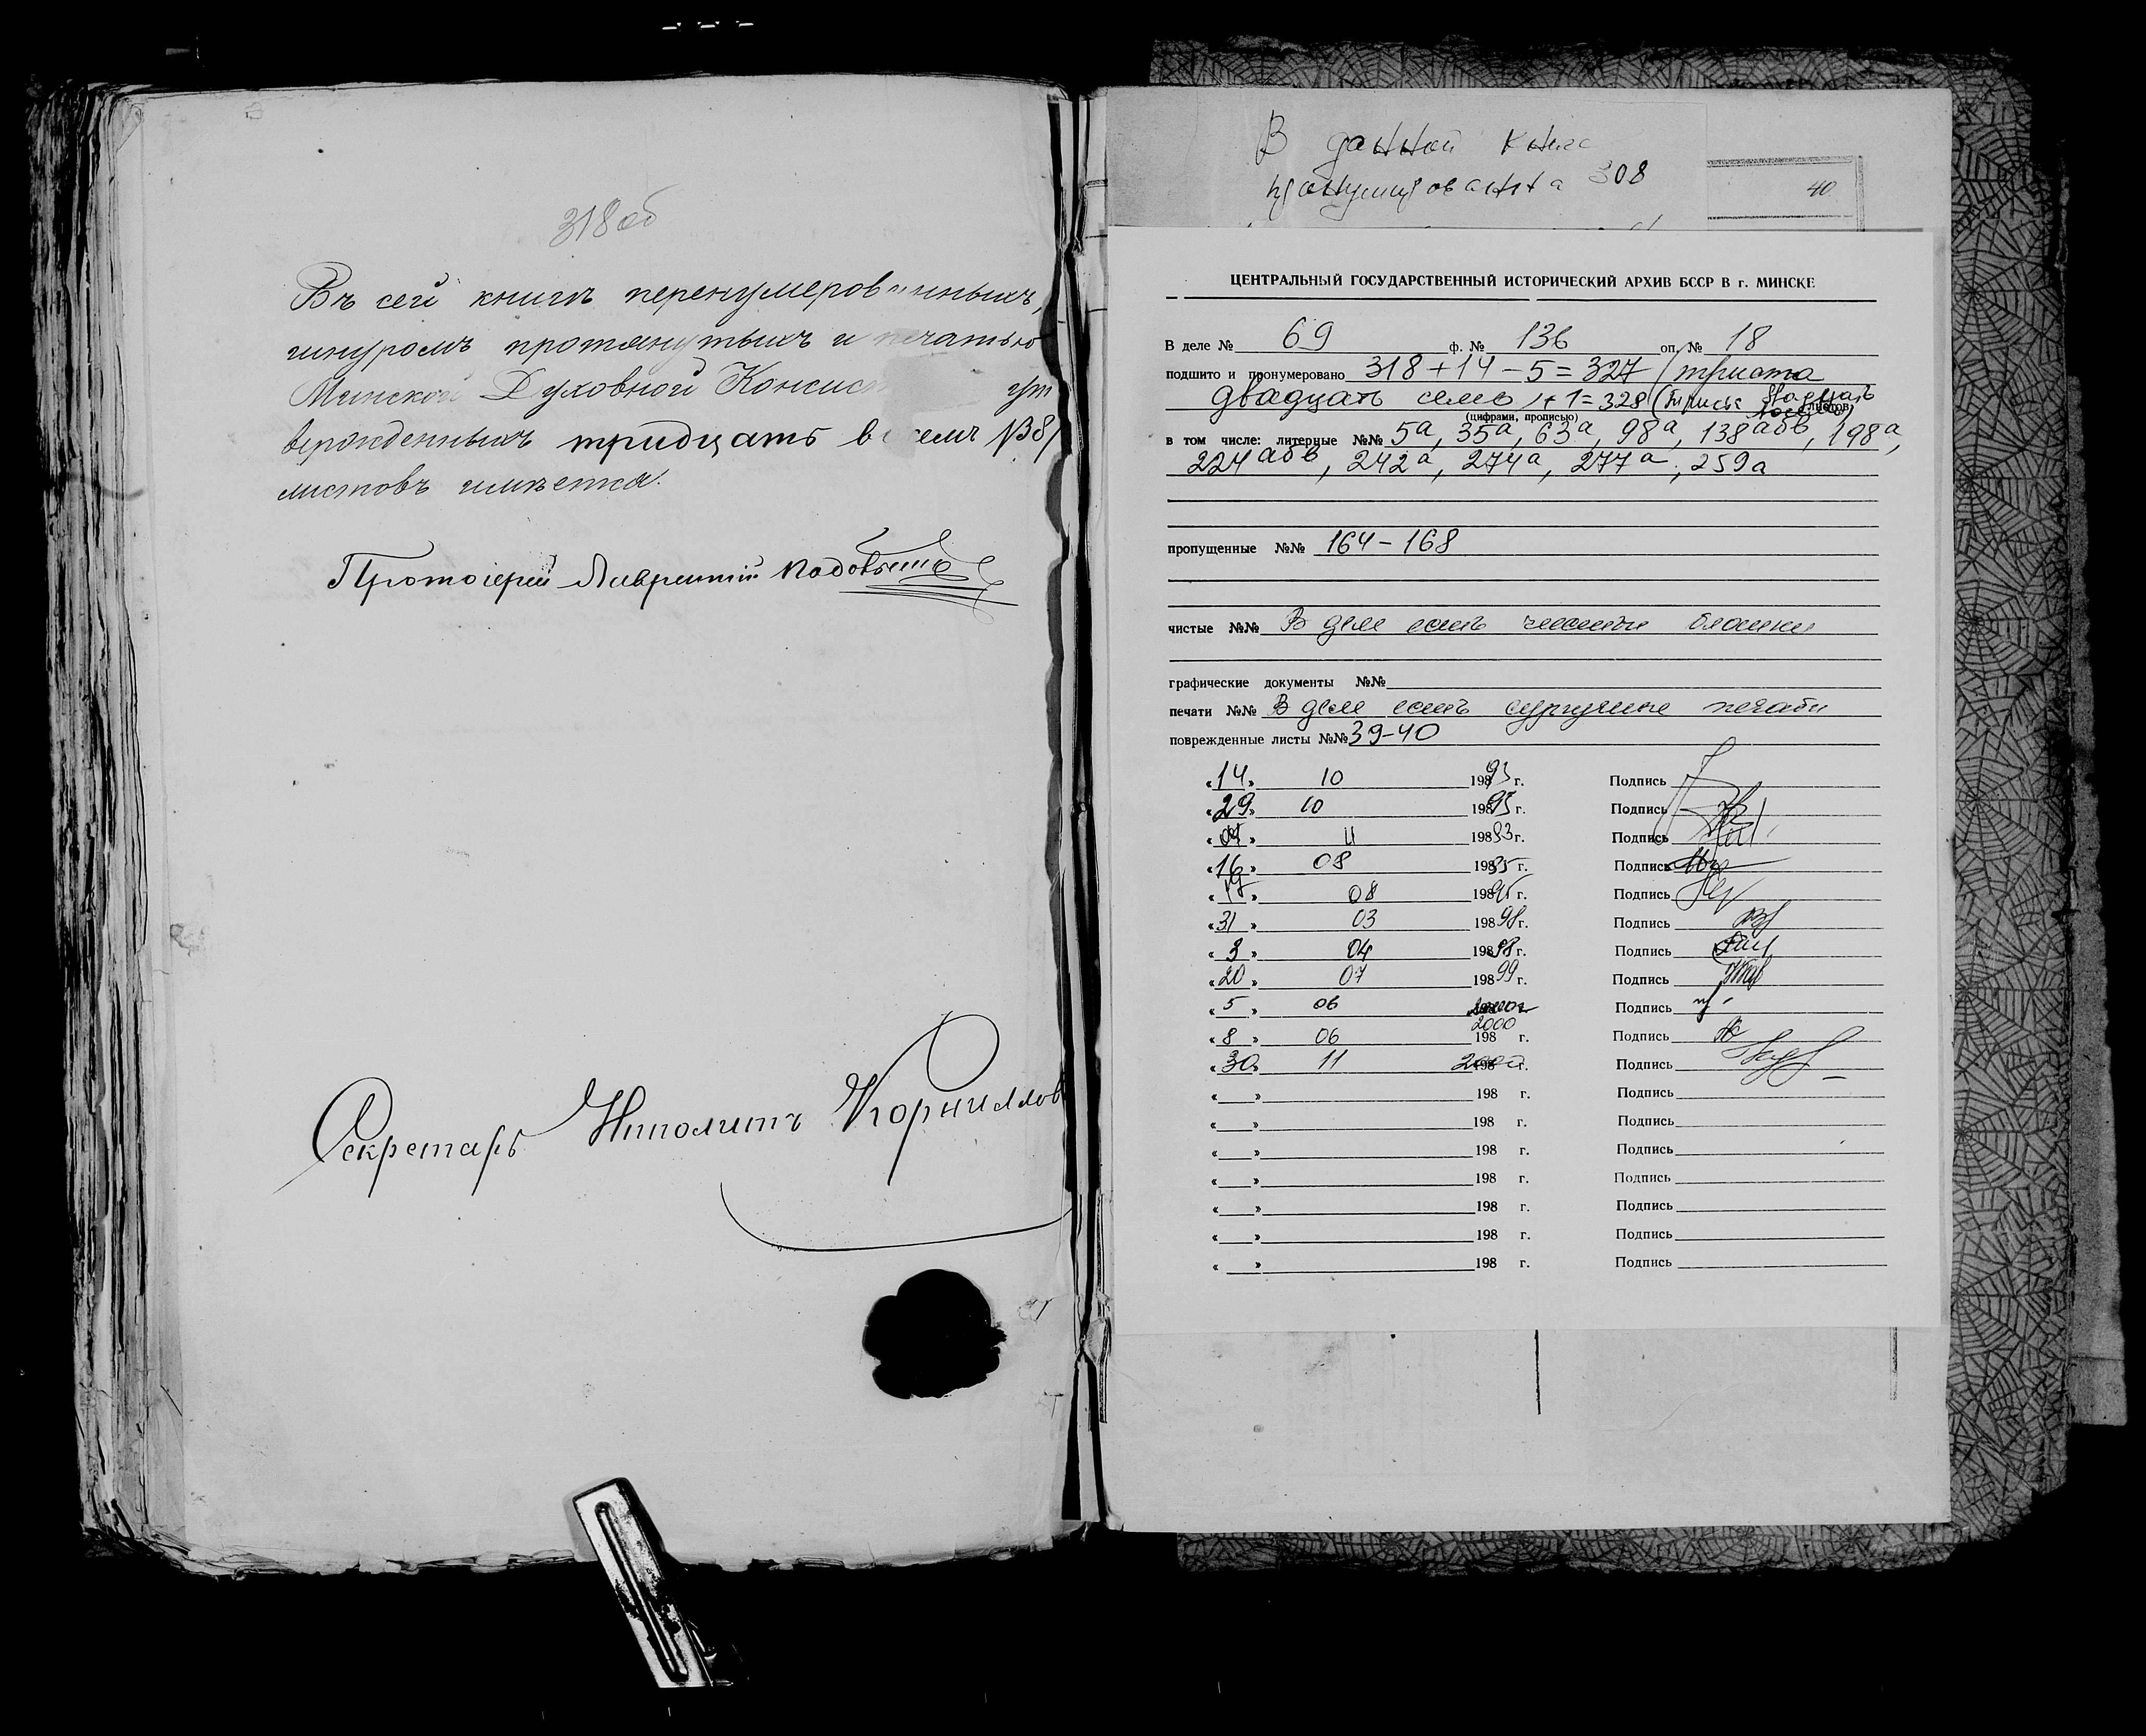 318 об
Въ сей книгѣ перенумерованныхъ,
шнуромъ протянутыхъ и печатью
Минской Духовной Консис ут
вержденныхъ тридцать восемь /38/
листовъ имѣется.
Протоіерей Лаврентій
Секретарь Ипполитъ Корнилов
В данной книге
пронумерованна 308
40
ЦЕНТРАЛЬНЫЙ ГОСУДАРСТВЕННЫЙ ИСТОРИЧЕСКИЙ АРХИВ БССР В г. МИНСКЕ
В деле № 69 ф. № 136 оп. № 18
подшито и пронумеровано 318 + 14 - 5 = 327 (триста
двадцать семь) + 1 = 328 (триста двадцать восемь) листов
(цифрами, прописью)
в том числе: литерные №№ 5а, 35а, 63а, 98а, 138абв, 198а,
224абв, 242а, 274а, 277а, 259а
пропущенные №№ 164-168
чистые №№ В деле есть чистые бланки
графические документы №№
печати №№ В деле есть сургучные печати
поврежденные листы №№ 39-40
«14» 10 1993 г. Подпись
«29» 10 198 г. Подпись
« » 11 19893 г. Подпись
«16» 08 19895 г. Подпись
«19» 08 19895 г. Подпись
«31» 03 19898 г. Подпись
«3» 04 19898 г. Подпись
«20» 07 19899 г. Подпись
«5» 06 Подпись
2000
«8» 06 198 г. Подпись
«30» 11 198 г. Подпись
« » 198 г. Подпись
« » 198 г. Подпись
« » 198 г. Подпись
« » 198 г. Подпись
« » 198 г. Подпись
« » 198 г. Подпись
« » 198 г. Подпись